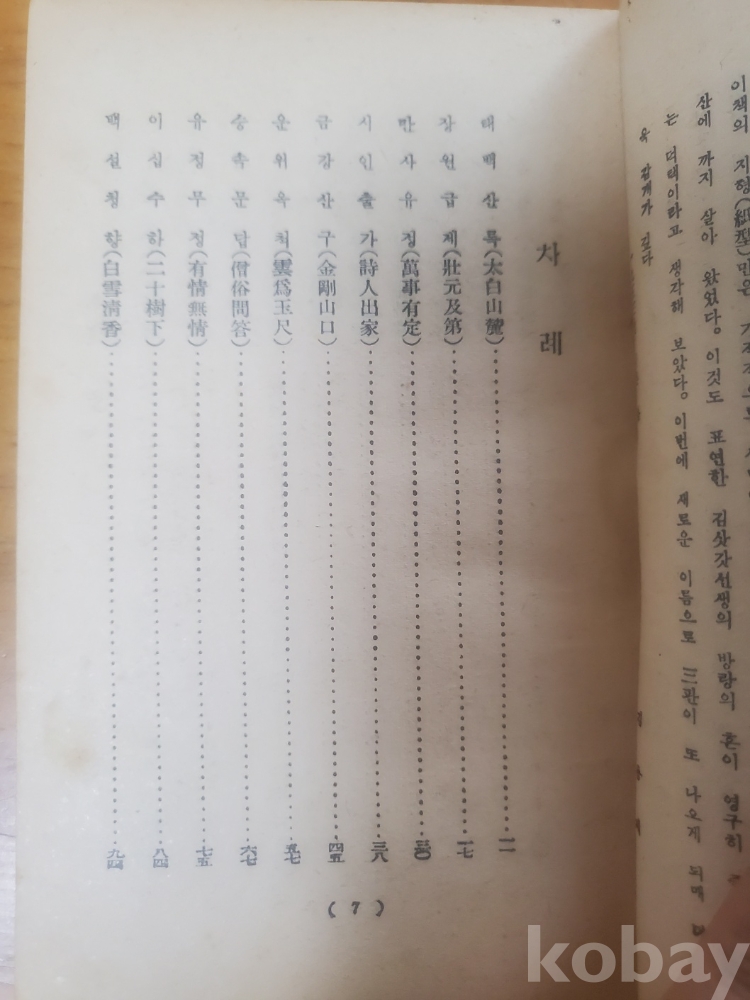 이책의 지형(紙型)만은
산에 까지 살아 왔었다. 이것도 표연한 김삿갓선생의 방랑의 혼이 영구히
는 더택이라고 생각해 보았다. 이번에 새로운 이름으로 三판이 또 나오게 되매
욱 감개가 깊다
차 레
태백산록(太白山麓)……一一
장원급제(壯元及第)……一七
만사유정(萬事有定)……三〇
시인출가(詩人出家)……三八
금강산구(金剛山口)……四五
운위옥척(雲爲玉尺)……五七
승속문답(僧俗問答)……六七
유정무정(有情無情)……七五
이십수하(二十樹下)……八四
백설청향(白雪清香)……九四
( 7 )
kobay